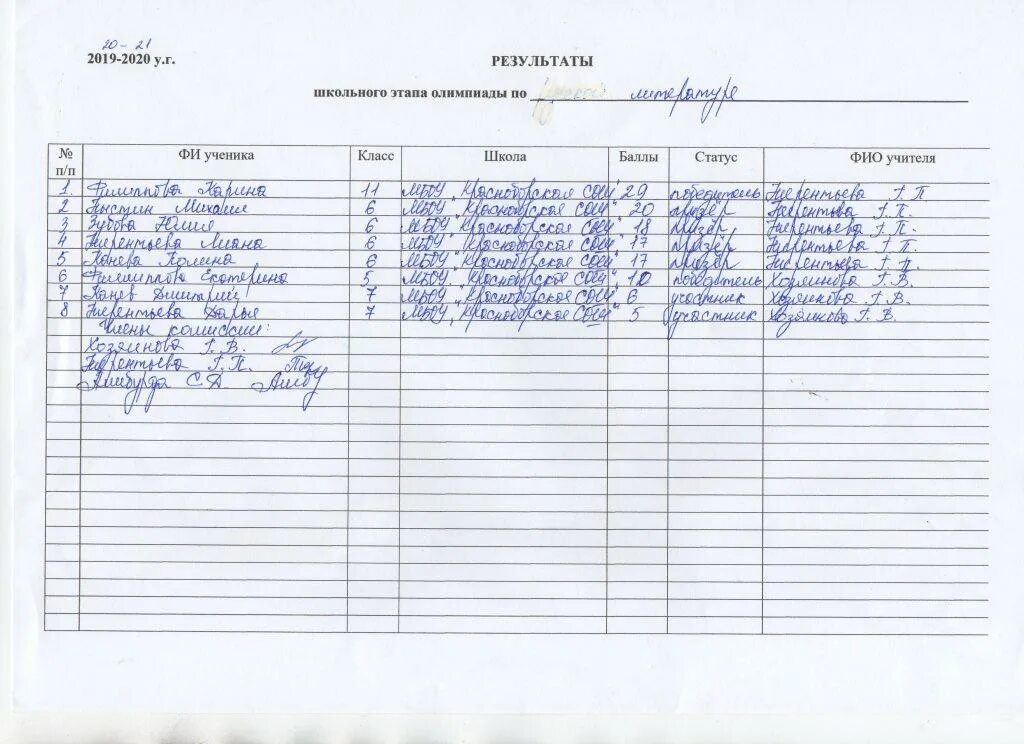 20-21
2019-2020 у.г.
РЕЗУЛЬТАТЫ
школьного этапа олимпиады по литературе
№ п/п ФИ ученика Класс Школа Баллы Статус ФИО учителя
1. Филиппова Карина 11 МБОУ "Красноборская СОШ" 29 победитель Терентьева Г. П.
2 Пыстин Михаил 6 МБОУ "Красноборская СОШ" 20 призёр Терентьева Г. П.
3 Зубова Юлия 6 МБОУ "Красноборская СОШ" 18 призёр Терентьева Г. П.
4 Терентьева Лиана 6 МБОУ "Красноборская СОШ" 17 призёр Терентьева Г. П.
5 Канева Полина 6 МБОУ "Красноборская СОШ" 17 призёр Терентьева Г. П.
6 Филиппова Екатерина 5 МБОУ "Красноборская СОШ" 10 победитель Хозяинова Г. В.
7 Канев Дмитрий 7 МБОУ "Красноборская СОШ" 6 участник Хозяинова Г. В.
8 Терентьева Дарья 7 МБОУ "Красноборская СОШ" 5 участник Хозяинова Г. В.
Члены комиссии:
Хозяинова Г. В.
Терентьева Г. П.
С Д